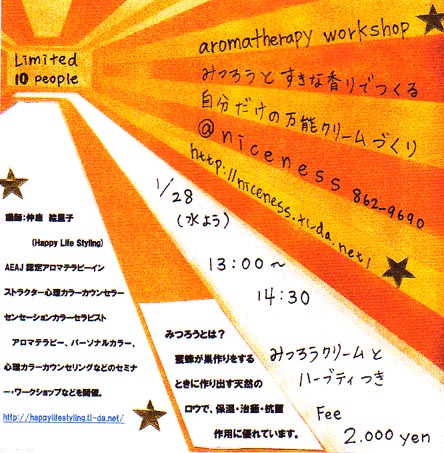 Limited
10 people
aromatherapy workshop
みつろうとすきな香りでつくる
自分だけの万能クリームづくり
@niceness 862-9690
http://niceness.ti-da.net/
1/28
(水よう)
13:00～
14:30
講師:仲座 絵里子
(Happy Life Styling)
AEAJ 認定アロマテラピーイン
ストラクター心理カラーカウンセラー
センセーションカラーセラピスト
アロマテラピー、パーソナルカラー、
心理カラーカウンセリングなどのセミナ
ー・ワークショップなどを開催。
http://happylifestyling.ti-da.net/
みつろうとは?
蜜蜂が巣作りをする
ときに作り出す天然の
ロウで、保湿・治癒・抗菌
作用に優れています。
みつろうクリームと
ハーブティつき
Fee
2.000 yen